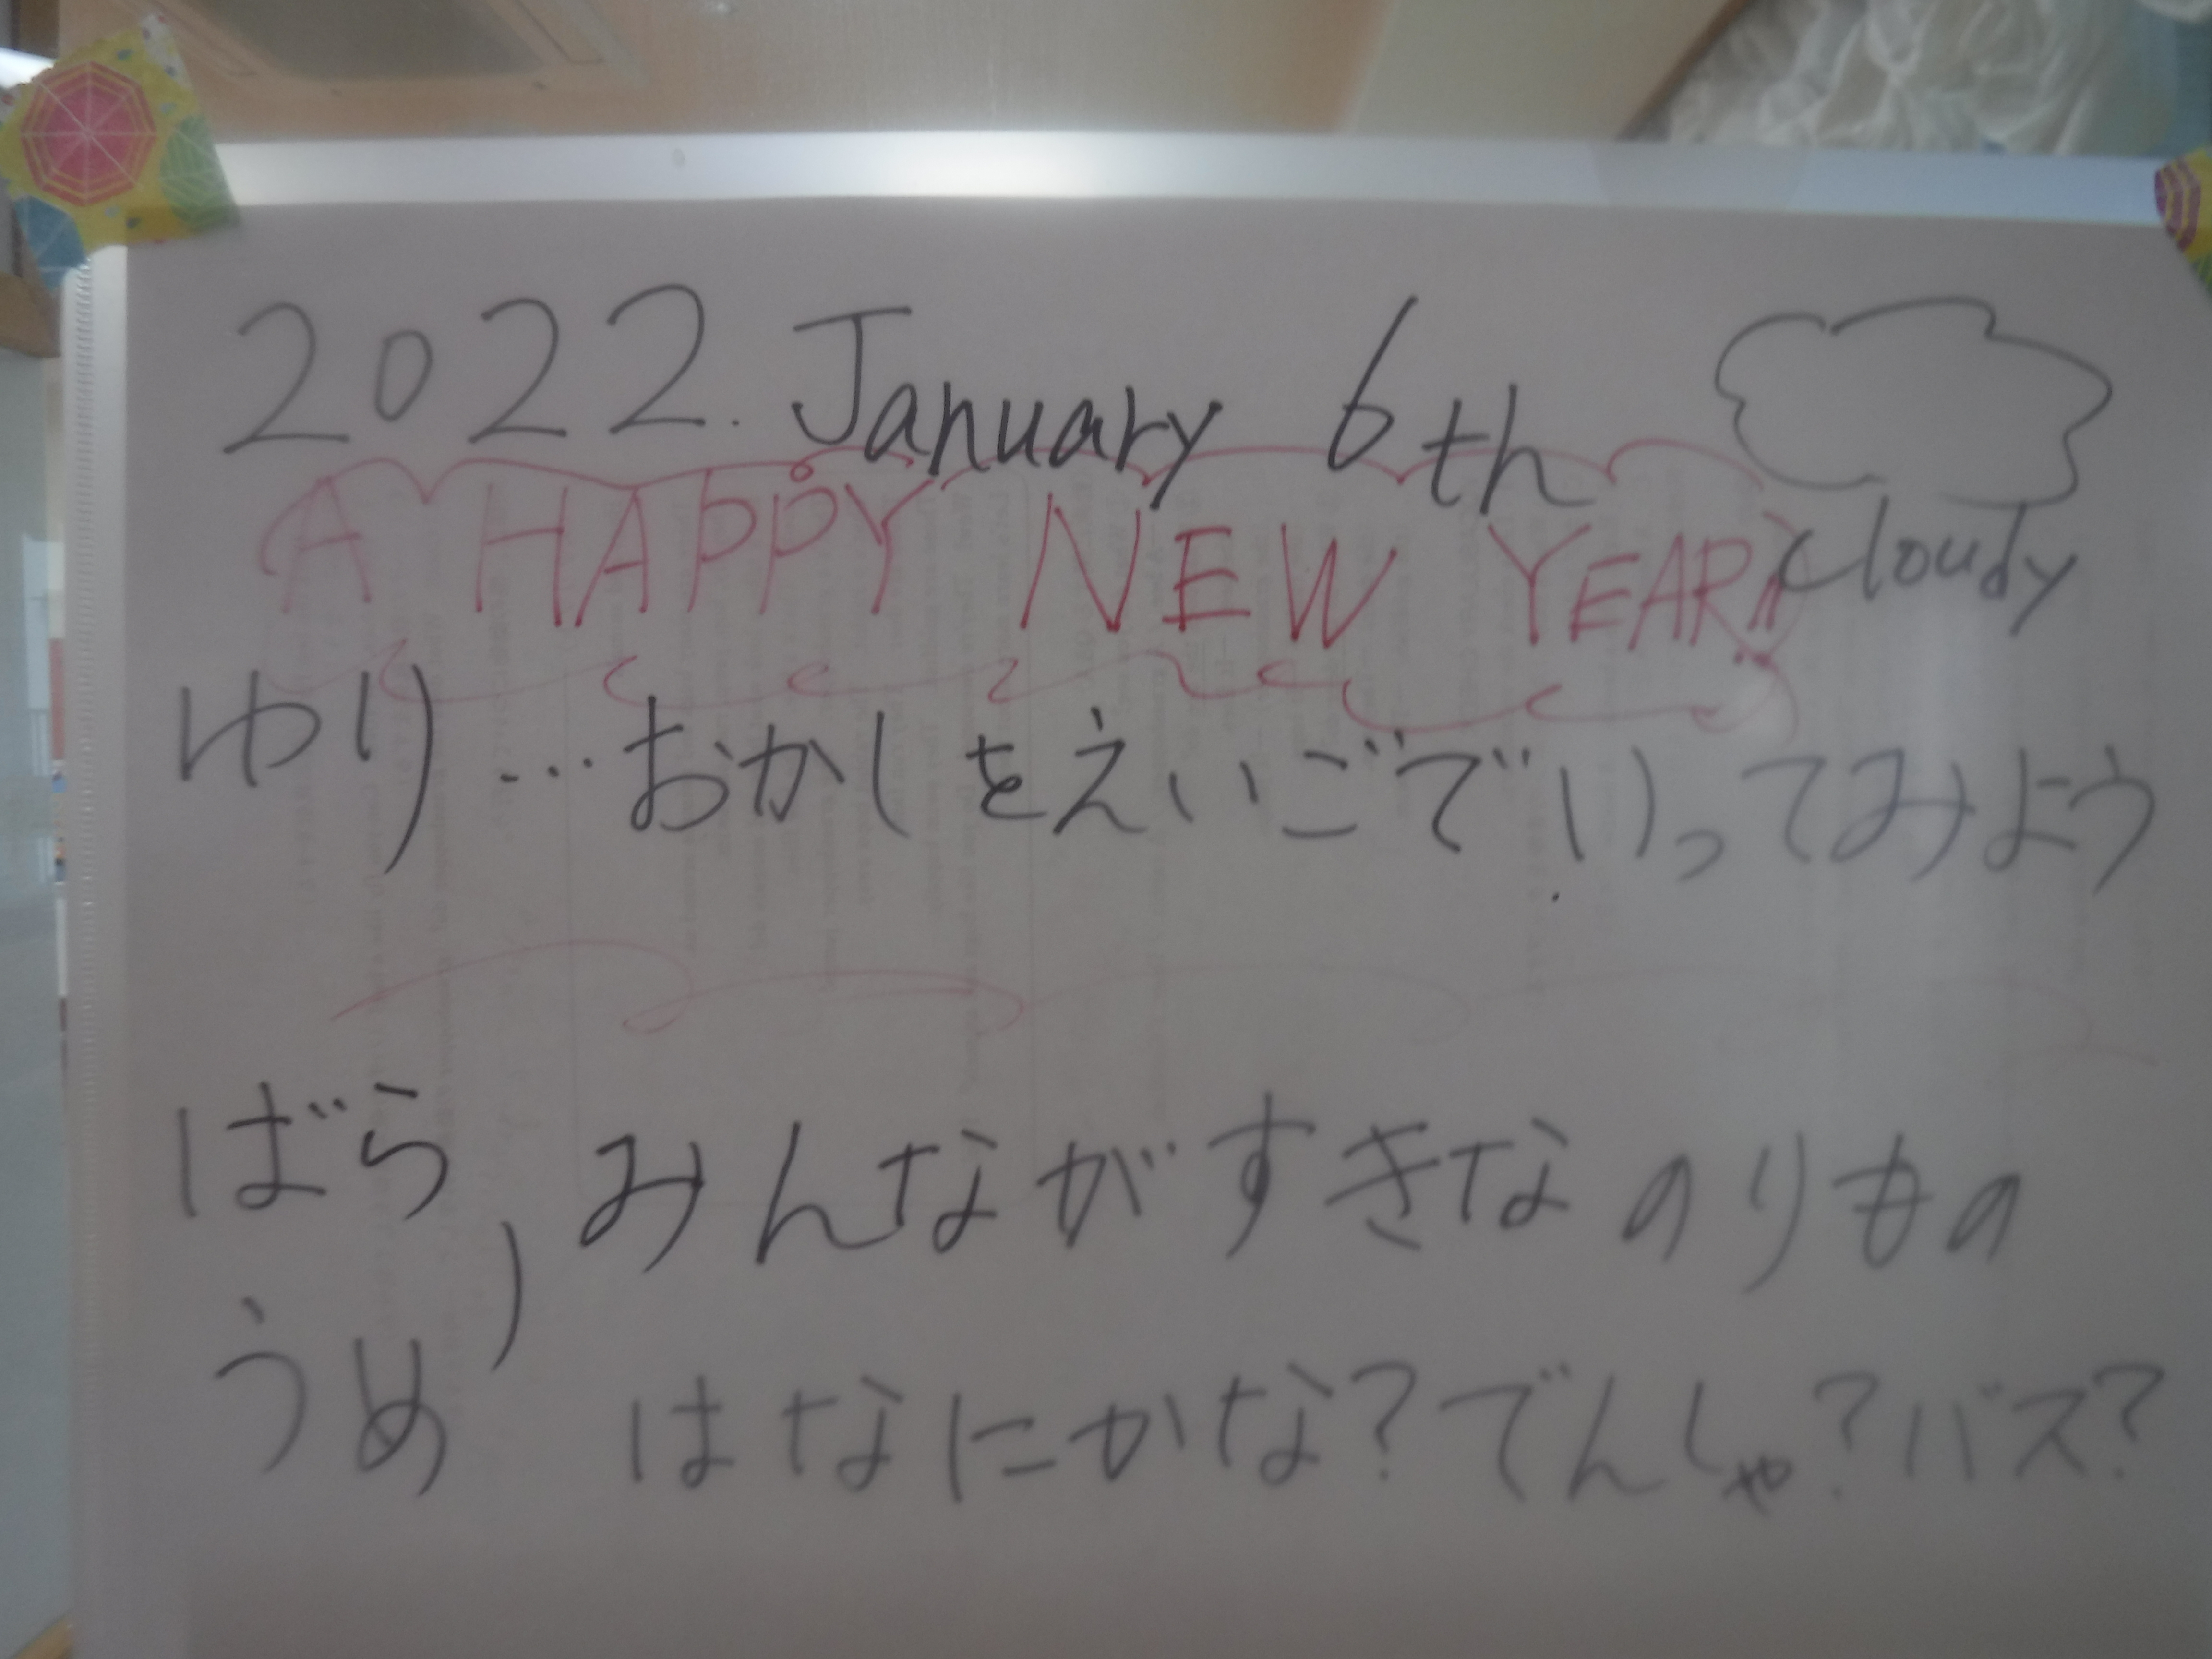 2022. January 6th
cloudy
A HAPPY NEW YEAR!!
ゆり…おかしをえいごでいってみよう
ばら, みんながすきなのりもの
うめ はなにかな?でんしゃ?バス?